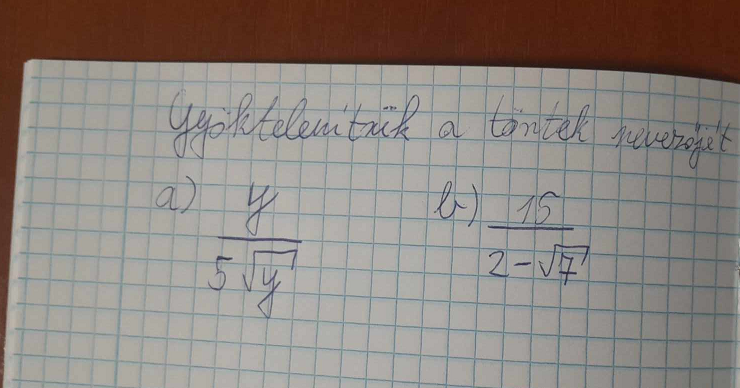 Gyöktelenítsük a törtek nevezőjét
a) y / 5√y b) 15 / 2-√7